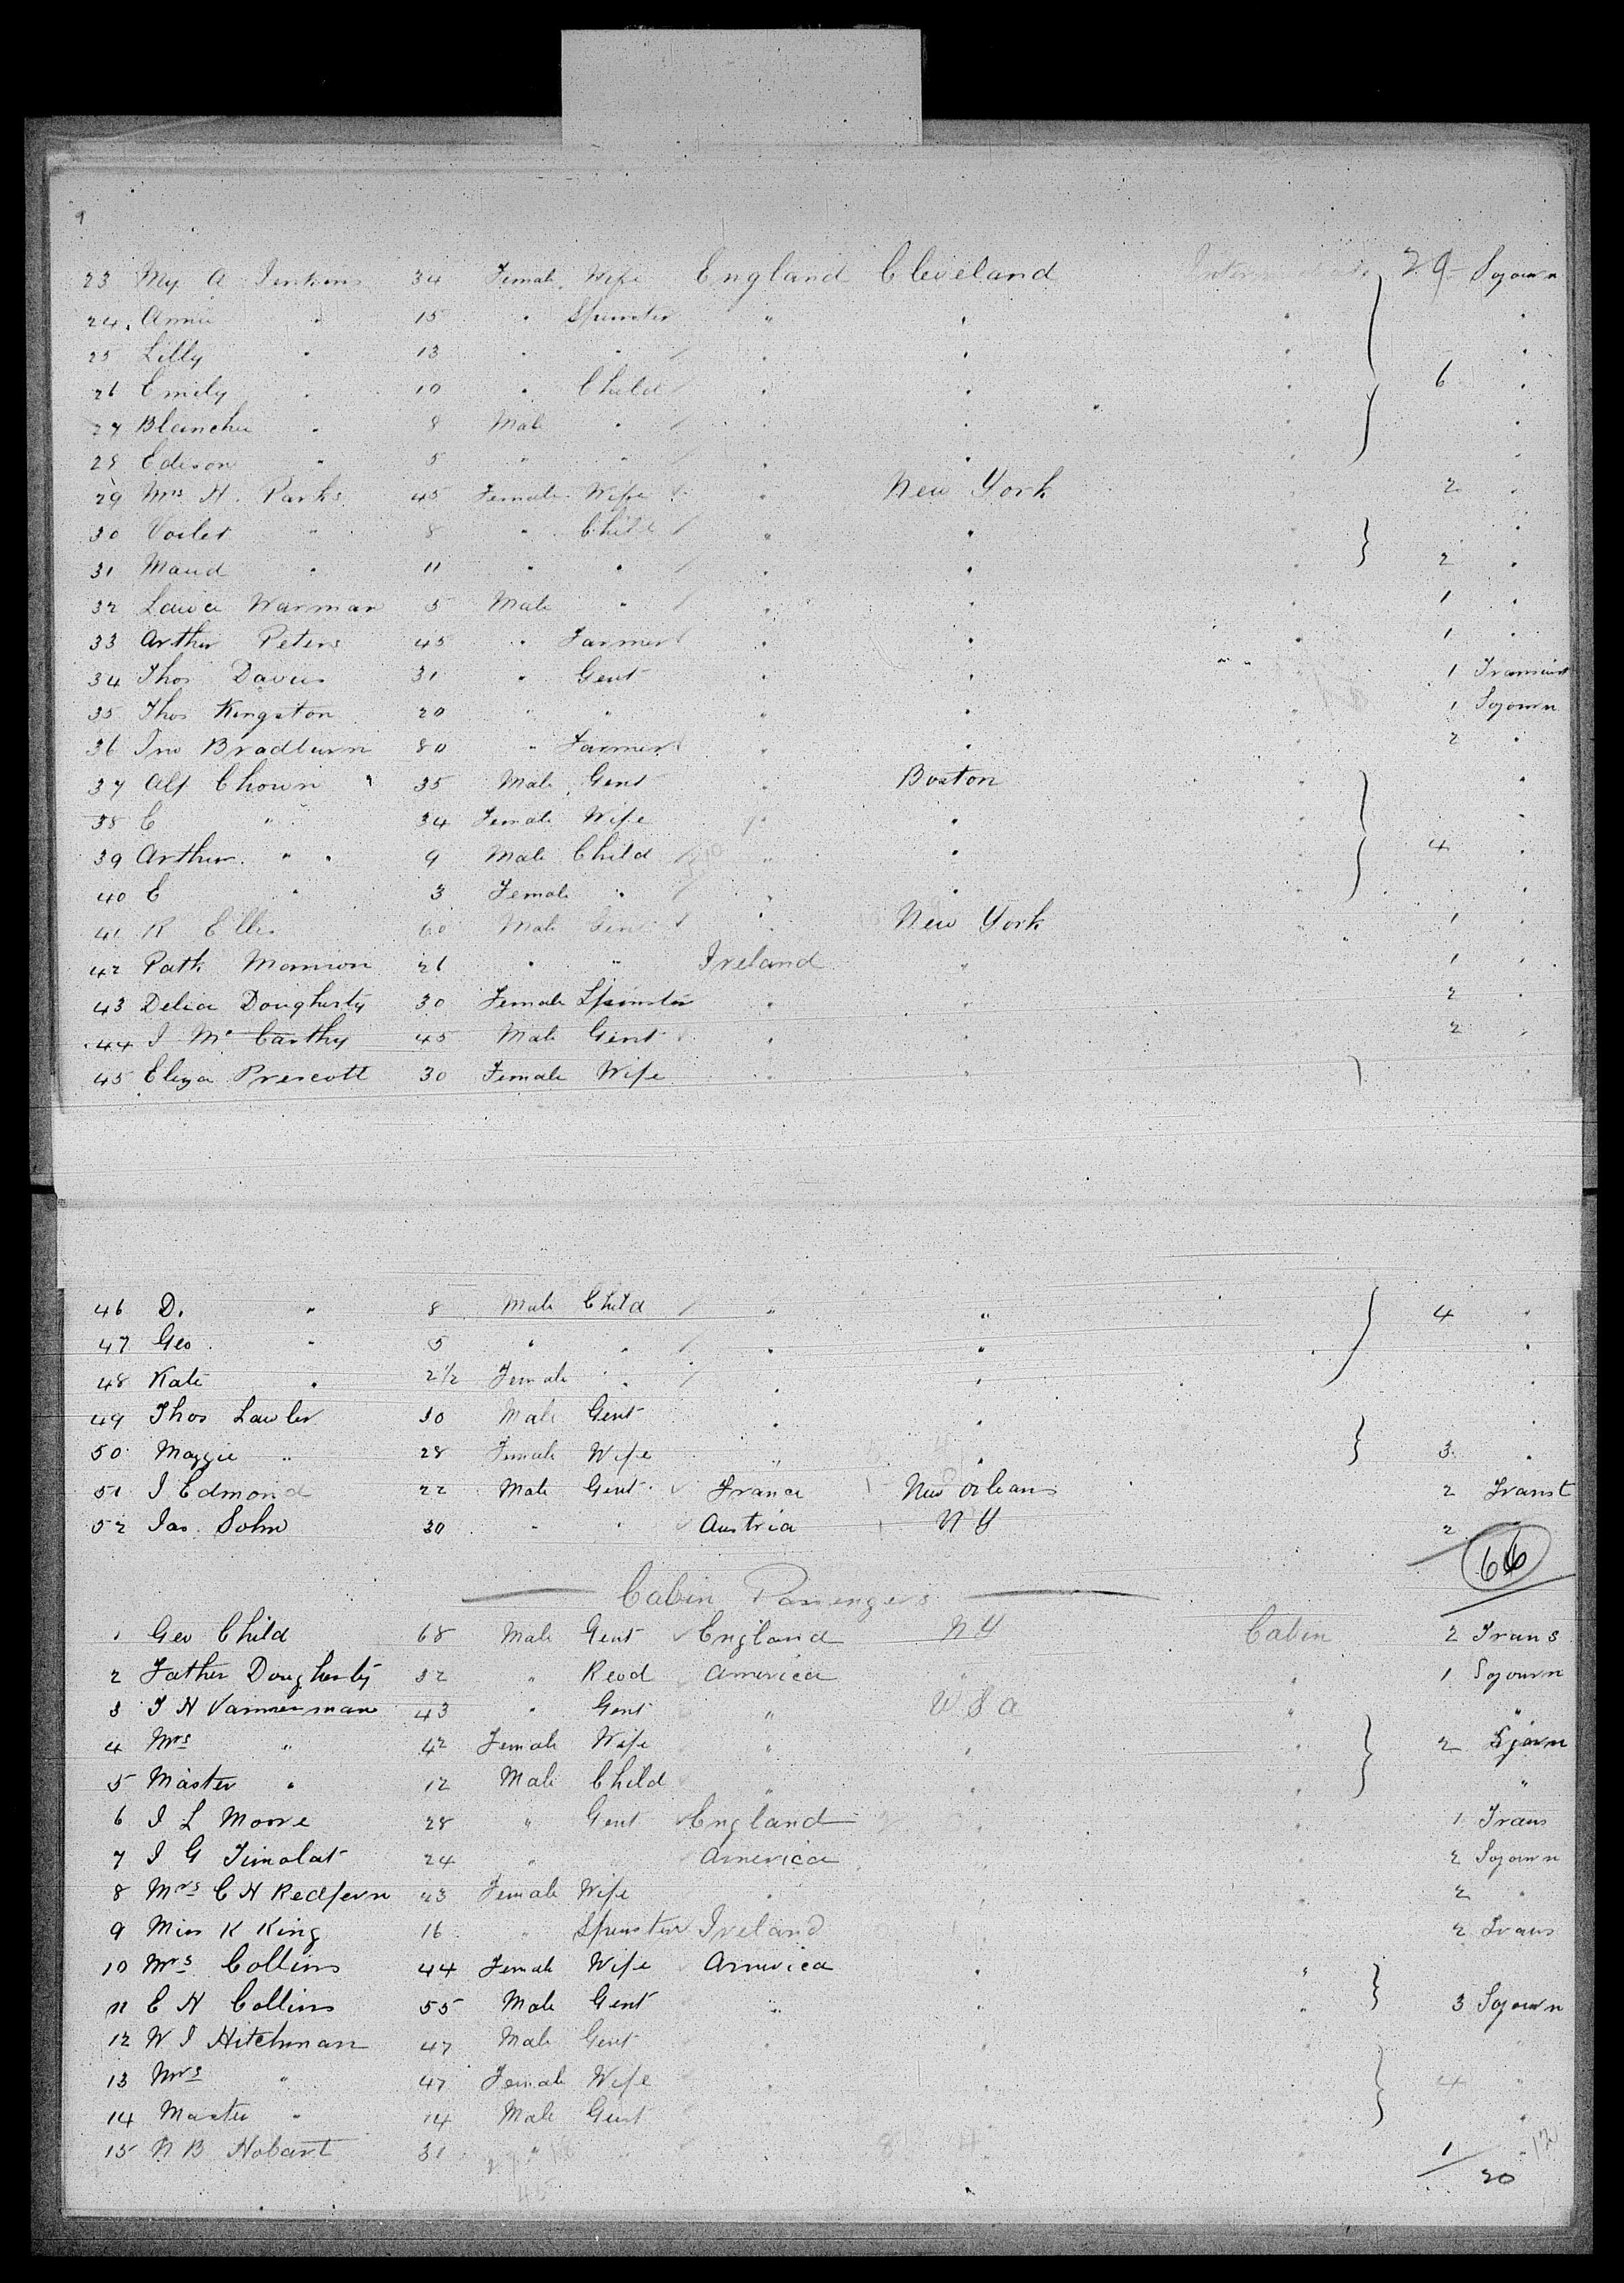 23 My A Jenkins 34 Female Wife England Cleveland Intermediate 29 Sojourn
24. Annie " 15 " Spinster " " " "
25 Lilly " 13 " " " " " "
26 Emily " 10 " Child " " " 6 "
27 Blanche " 8 Male " " " " "
28 Edison " 5 " " " " " "
29 Mrs H. Parks 45 Female Wife " New York " 2 "
30 Voilet " 8 " Child " " " "
31 Maud " 11 " " " " " 2 "
32 Warman 5 Male " " " " 1 "
33 Arthur Peters 45 " Farmer " " " 1 "
34 Thos Davies 31 " Gent " " " 1 Transient
35 Thos Kingston 20 " " " " " 1 Sojourn
36 Jno Bradburn 80 " Farmer " " " 2 "
37 Alf Chown 35 Male Gent " Boston " "
38 E " 34 Female Wife " " " "
39 Arthur " 9 Male Child " " " 4 "
40 E " 3 Female " " " " "
41 R Ellis 60 Male Gent " New York " 1 "
42 Patk 26 " " Ireland " 1 "
43 Delia Dougherty 30 Female Spinster " " 2 "
44 J McCarthy 45 Male Gent " " 2 "
45 Eliza Prescott 30 Female Wife " " "
46 D. " 8 Male Child " " 4 "
47 Geo " 5 " " " " "
48 Kate " 2½ Female " " " "
49 Thos Lawler 30 Male Gent " " "
50 Maggie " 28 Female Wife " " 3 "
51 J Edmond 22 Male Gent France New Orleans 2 Transt
52 Jas. Sohn 30 " " Austria N Y 2
66
Cabin Passengers
1 Geo Child 68 Male Gent England N Y Cabin 2 Trans
2 Father Dougherty 32 " Revd America " " 1 Sojourn
3 J H 43 " Gent " U S A " "
4 Mrs " 42 Female Wife " " " 2 Sjorn
5 Master " 12 Male Child " " " "
6 J L Moore 28 " Gent England " " 1 Trans
7 J G Timolat 24 " America " " 2 Sojourn
8 Mrs C H Redfern 43 Female Wife " " " 2 "
9 Miss K King 16 " Spinster Ireland " " 2 Trans
10 Mrs Collins 44 Female Wife America " "
11 E H Collins 55 Male Gent " " " 3 Sojourn
12 W J Hitchman 47 Male Gent " " " "
13 Mrs " 47 Female Wife " " " 4 "
14 Master " 14 Male Gent " " " "
15 N B Hobart 31 " " " 1 "
20